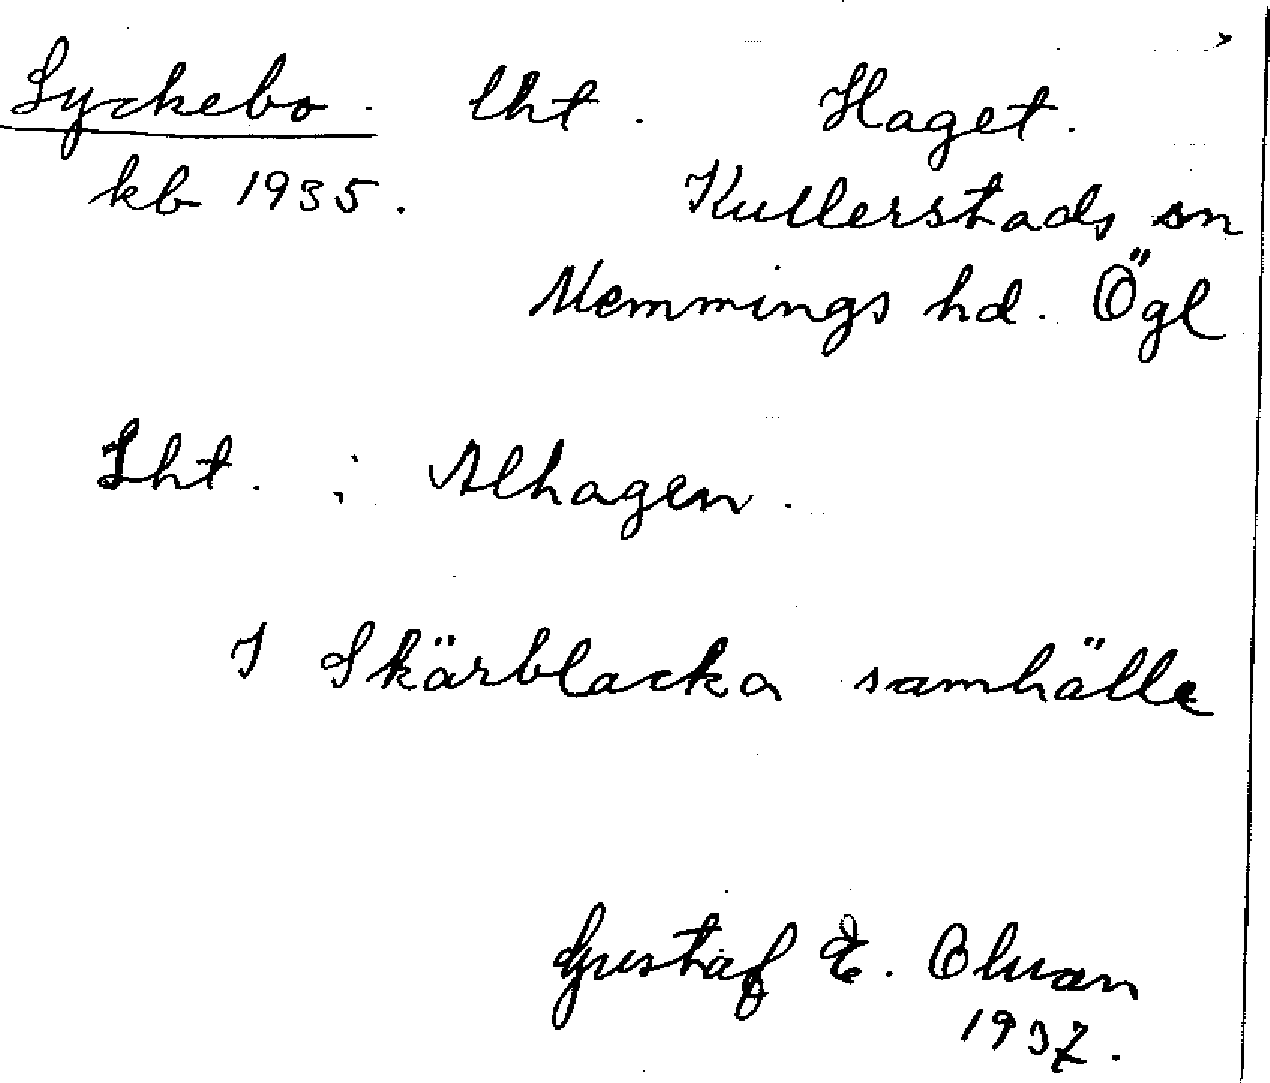 Lyckebo. lht. Haget.
kb 1935. Kullerstads sn
Memmings hd. Ögl
Lht. : Alhagen.
I Skärblacka samhälle
Gustaf E. Olsson
1937.